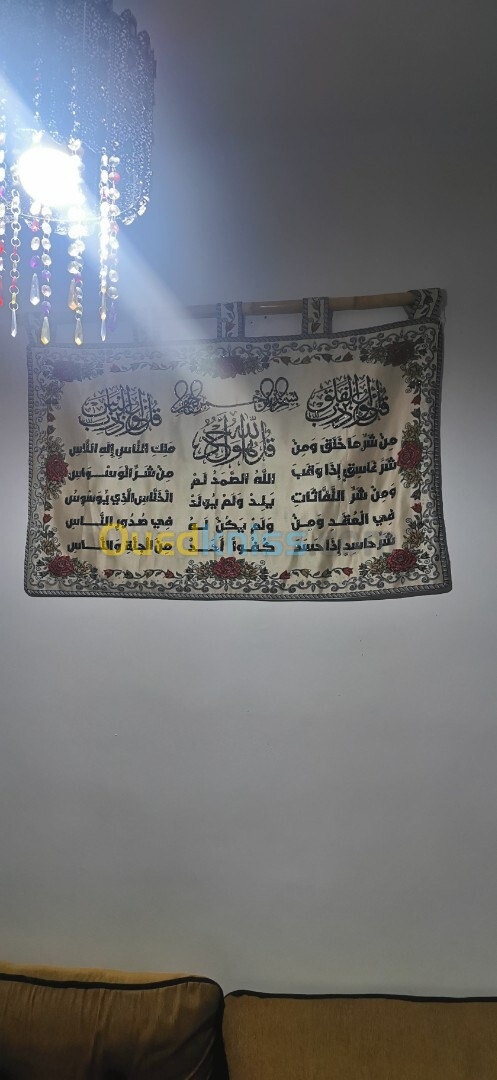 بسم الله الرحمن الرحيم
قل أعوذ برب الفلق
مِنْ شَرِّ مَا خَلَقَ وَمِنْ
شَرِّ غَاسِقٍ إِذَا وَقَبَ
وَمِنْ شَرِّ النَّفَّاثَاتِ
فِي الْعُقَدِ وَمِنْ
شَرِّ حَاسِدٍ إِذَا حَسَدَ
قل هو الله أحد
اللَّهُ الصَّمَدُ لَمْ
يَلِدْ وَلَمْ يُولَدْ
وَلَمْ يَكُنْ لَهُ
كُفُواً أَحَدٌ
قل أعوذ برب الناس
مَلِكِ النَّاسِ إِلَهِ النَّاسِ
مِنْ شَرِّ الْوَسْوَاسِ
الْخَنَّاسِ الَّذِي يُوَسْوِسُ
فِي صُدُورِ النَّاسِ
مِنَ الْجِنَّةِ وَالنَّاسِ
Ouedkniss